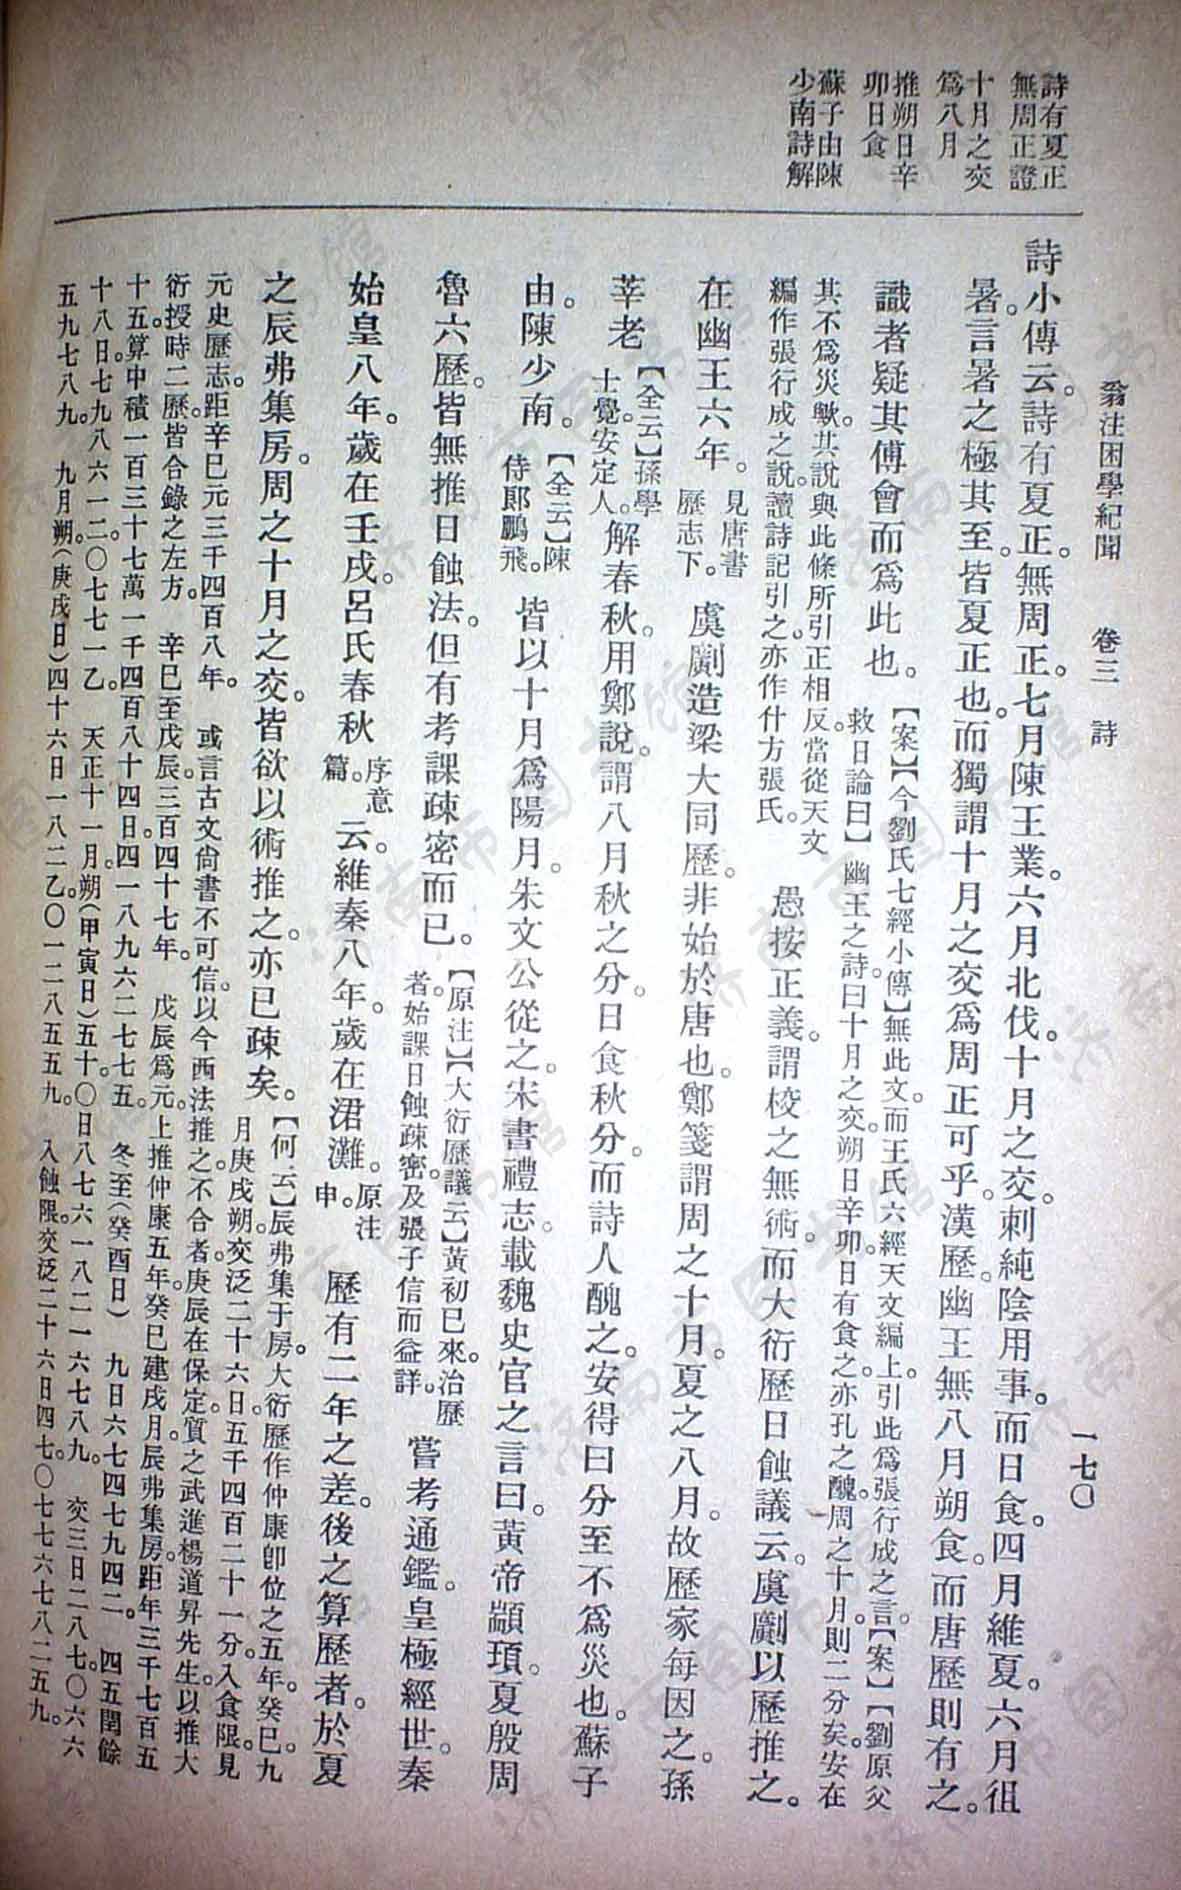 翁注困學紀聞　卷三　詩　一七〇
詩有夏正
無周正證
十月之交
爲八月
推朔日辛
卯日食
蘇子由陳
少南詩解
詩小傳云。詩有夏正。無周正。七月陳王業。六月北伐。十月之交。刺純陰用事。而日食。四月維夏。六月徂
暑。言暑之極其至。皆夏正也。而獨謂十月之交爲周正可乎。漢歷。幽王無八月朔食。而唐歷則有之。
識者疑其傅會而爲此也。【案】【今劉氏七經小傳】無此文。而王氏六經天文編上。引此爲張行成之言。【案】【劉原父
救日論曰】幽王之詩。曰十月之交。朔日辛卯。日有食之。亦孔之醜。周之十月。則二分矣。安在
其不爲災歟。其說與此條所引正相反。當從天文
編作張行成之說。讀詩記引之。亦作什方張氏。愚按正義。謂校之無術。而大衍歷日蝕議云。虞𠠎以歷推之。
在幽王六年。見唐書
歷志下。虞𠠎造梁大同歷。非始於唐也。鄭箋謂周之十月。夏之八月。故歷家每因之。孫
莘老【全云】孫學
士覺。安定人。解春秋。用鄭說。謂八月秋之分。日食秋分。而詩人醜之。安得曰分至不爲災也。蘇子
由。陳少南。【全云】陳
侍郎鵬飛。皆以十月爲陽月。朱文公從之。宋書禮志。載魏史官之言曰。黃帝顓頊。夏殷周
魯六歷。皆無推日蝕法。但有考課疎密而已。【原注】【大衍歷議云】黃初已來。治歷
者。始課日蝕疎密。及張子信而益詳。嘗考通鑑。皇極經世。秦
始皇八年。歲在壬戌。呂氏春秋序意
篇。云。維秦八年。歲在涒灘。原注
申。歷有二年之差。後之算歷者。於夏
之辰弗集房。周之十月之交。皆欲以術推之。亦已疎矣。【何云】辰弗集于房。大衍歷作仲康卽位之五年。癸巳。九
月庚戌朔。交泛二十六日五千四百二十一分。入食限。見
元史歷志。距辛巳元三千四百八年。　或言古文尙書不可信。以今西法推之。不合者。庚辰在保定。質之武進楊道昇先生。以推大
衍授時二歷。皆合錄之左方。　辛巳至戊辰。三百四十七年。　戊辰爲元。上推仲康五年。癸巳建戌月。辰弗集房。距年三千七百五
十五。算中積一百三十七萬一千四百八十四日四一八九六二七七五。　冬至(癸酉日)　九日六七四七九四二。　四五閏餘
十八日。七九八六一二〇七七一乙　天正十一月。朔(甲寅日)五十〇日八七六一八二一六七八九。　交三日二八七〇六六
五九七八九。　九月朔(庚戌日)四十六日一八二乙〇一二八五五九。　入蝕限。交泛二十六日四七〇七七六七八二五九。